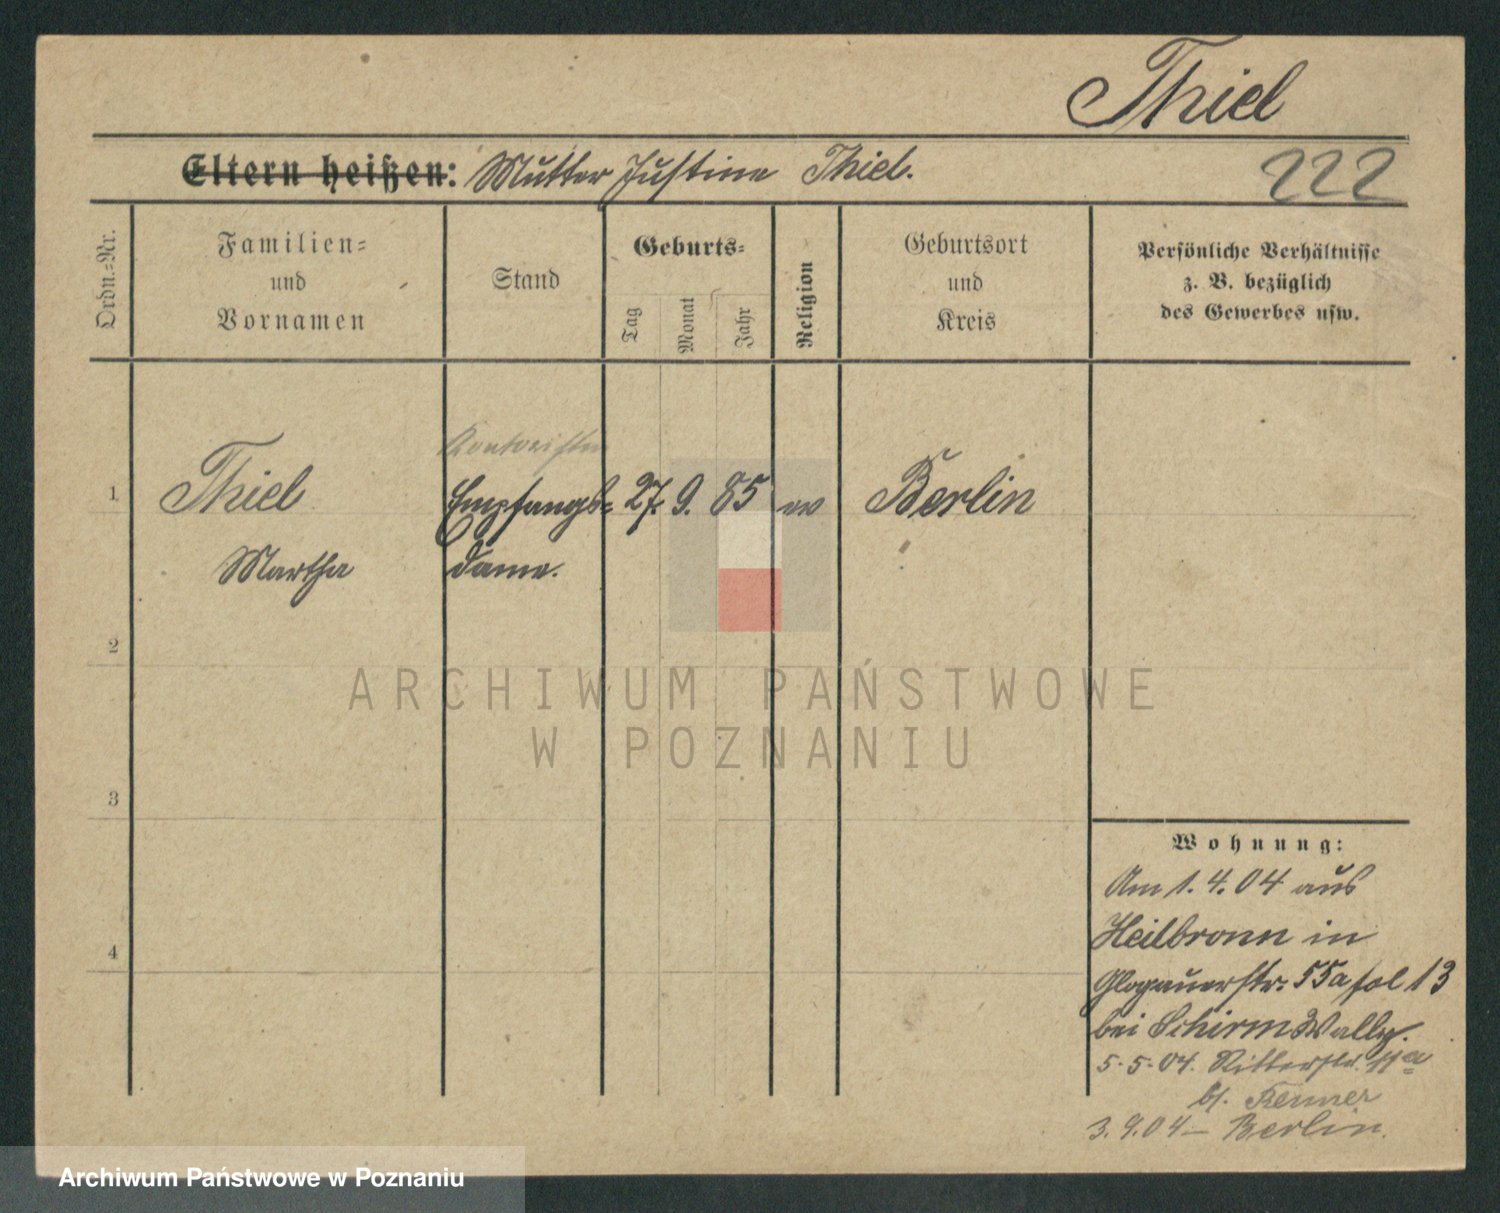 Thiel
Eltern heißen: Mutter Justine Thiel.
222
Ordn.-Nr.
Familien-
und
Vornamen
Stand
Geburts-
Tag
Monat
Jahr
Religion
Geburtsort
und
Kreis
Persönliche Verhältnisse
z. B. bezüglich
des Gewerbes usw.
Kontoristin
1
Thiel
Empfangs-
27. 9. 85
ev
Berlin
Martha
dame.
2
ARCHIWUM PAŃSTWOWE
W POZNANIU
3
Wohnung:
Am 1. 4. 04 aus
Heilbronn in
4
Glogauerstr. 55a fol 13
bei Schirm Wally.
5.5.04. Ritterstr. 11a
b/. Renner
3.9.04 – Berlin.
Archiwum Państwowe w Poznaniu